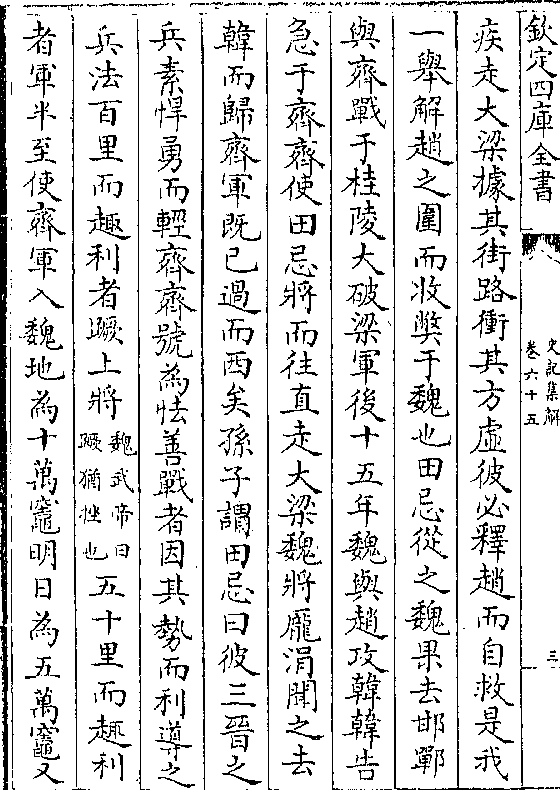 欽定四庫全書
史記集解
卷六十五
三
疾走大梁據其街路衝其方虛彼必釋趙而自救是我
一舉解趙之圍而收獘于魏也田忌從之魏果去邯鄲
與齊戰于桂陵大破梁軍後十五年魏與趙攻韓韓告
急于齊齊使田忌將而往直走大梁魏將龐涓聞之去
韓而歸齊軍既已過而西矣孫子謂田忌曰彼三晉之
兵素悍勇而輕齊齊號為怯善戰者因其勢而利導之
兵法百里而趣利者蹶上將
魏武帝曰
蹶猶挫也
五十里而趣利
者軍半至使齊軍入魏地為十萬竈明日為五萬竈又